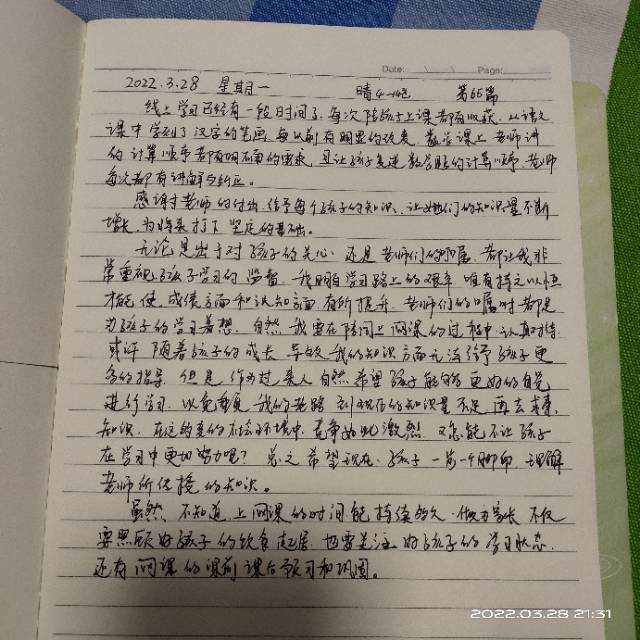 Date: Page:
2022.3.28 星期一 晴4-14℃ 第65篇
线上学习已经有一段时间了，每次陪孩子上课都有收获，从语文
课中学到了汉字的笔画，每从前有明显的改变，数学课上老师讲
的计算顺序都有明确的要求，且让孩子复述数学题的计算顺序，老师
每次都有讲解与纠正。
感谢老师的付出，给予每个孩子的知识，让她们的知识量不断
增长，为将来打下坚定的基础。
无论是出于对孩子的关心，还是老师们的叮嘱，都让我非
常重视孩子学习的监督，我明白学习路上的艰辛，唯有持之以恒
才能使成绩方面和认知方面有所提升，老师们的嘱咐都是
为孩子的学习着想，自然我要在陪同上网课的过程中认真对待，
或许随着孩子的成长，导致我的知识方面无法给予孩子更
多的指导，但是作为过来人自然希望孩子能够更好的自觉
进行学习，以免重复我的老路，到现在的知识量不足，再去求索
知识，在这的真的社会环境中，竞争如此激烈，又怎能不让孩子
在学习中更加努力呢？总之希望现在孩子一步一个脚印，理解
老师所传授的知识。
虽然不知道上网课的时间能持续多久，做为家长不仅
要照顾好孩子的饮食起居，也要关注好孩子的学习状态，
还有网课的课前课后预习和巩固。
2022.03.28 21:31